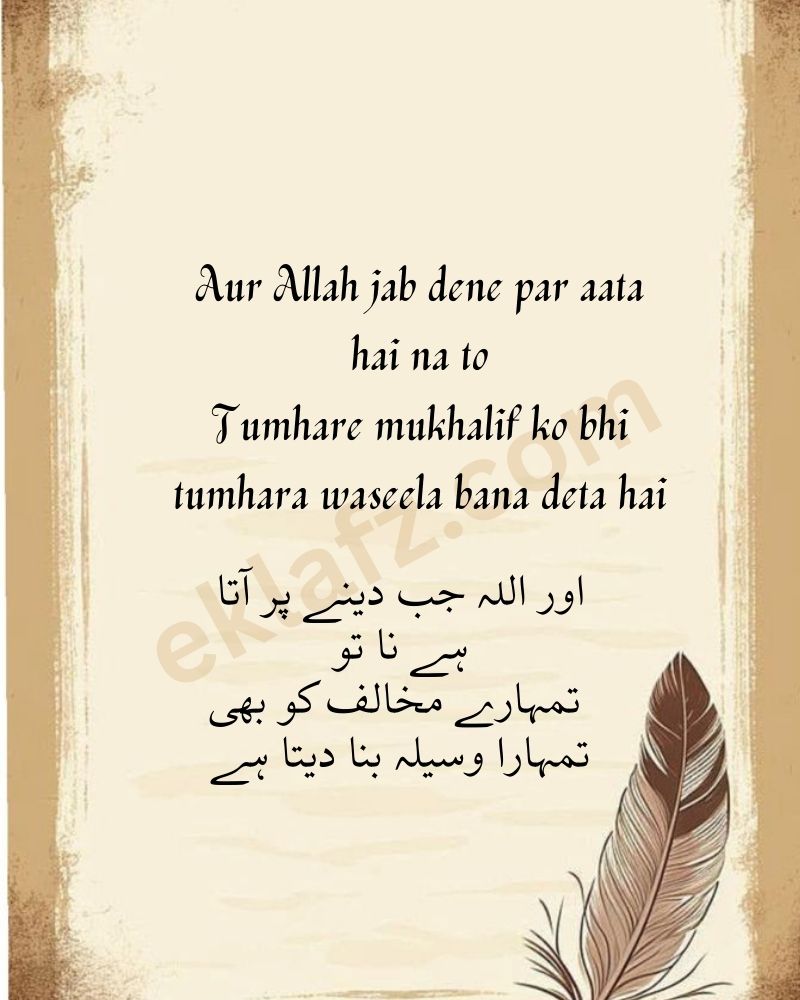 Aur Allah jab dene par aata
hai na to
Tumhare mukhalif ko bhi
tumhara waseela bana deta hai
eklafz.com
اور اللہ جب دینے پر آتا
ہے نا تو
تمہارے مخالف کو بھی
تمہارا وسیلہ بنا دیتا ہے